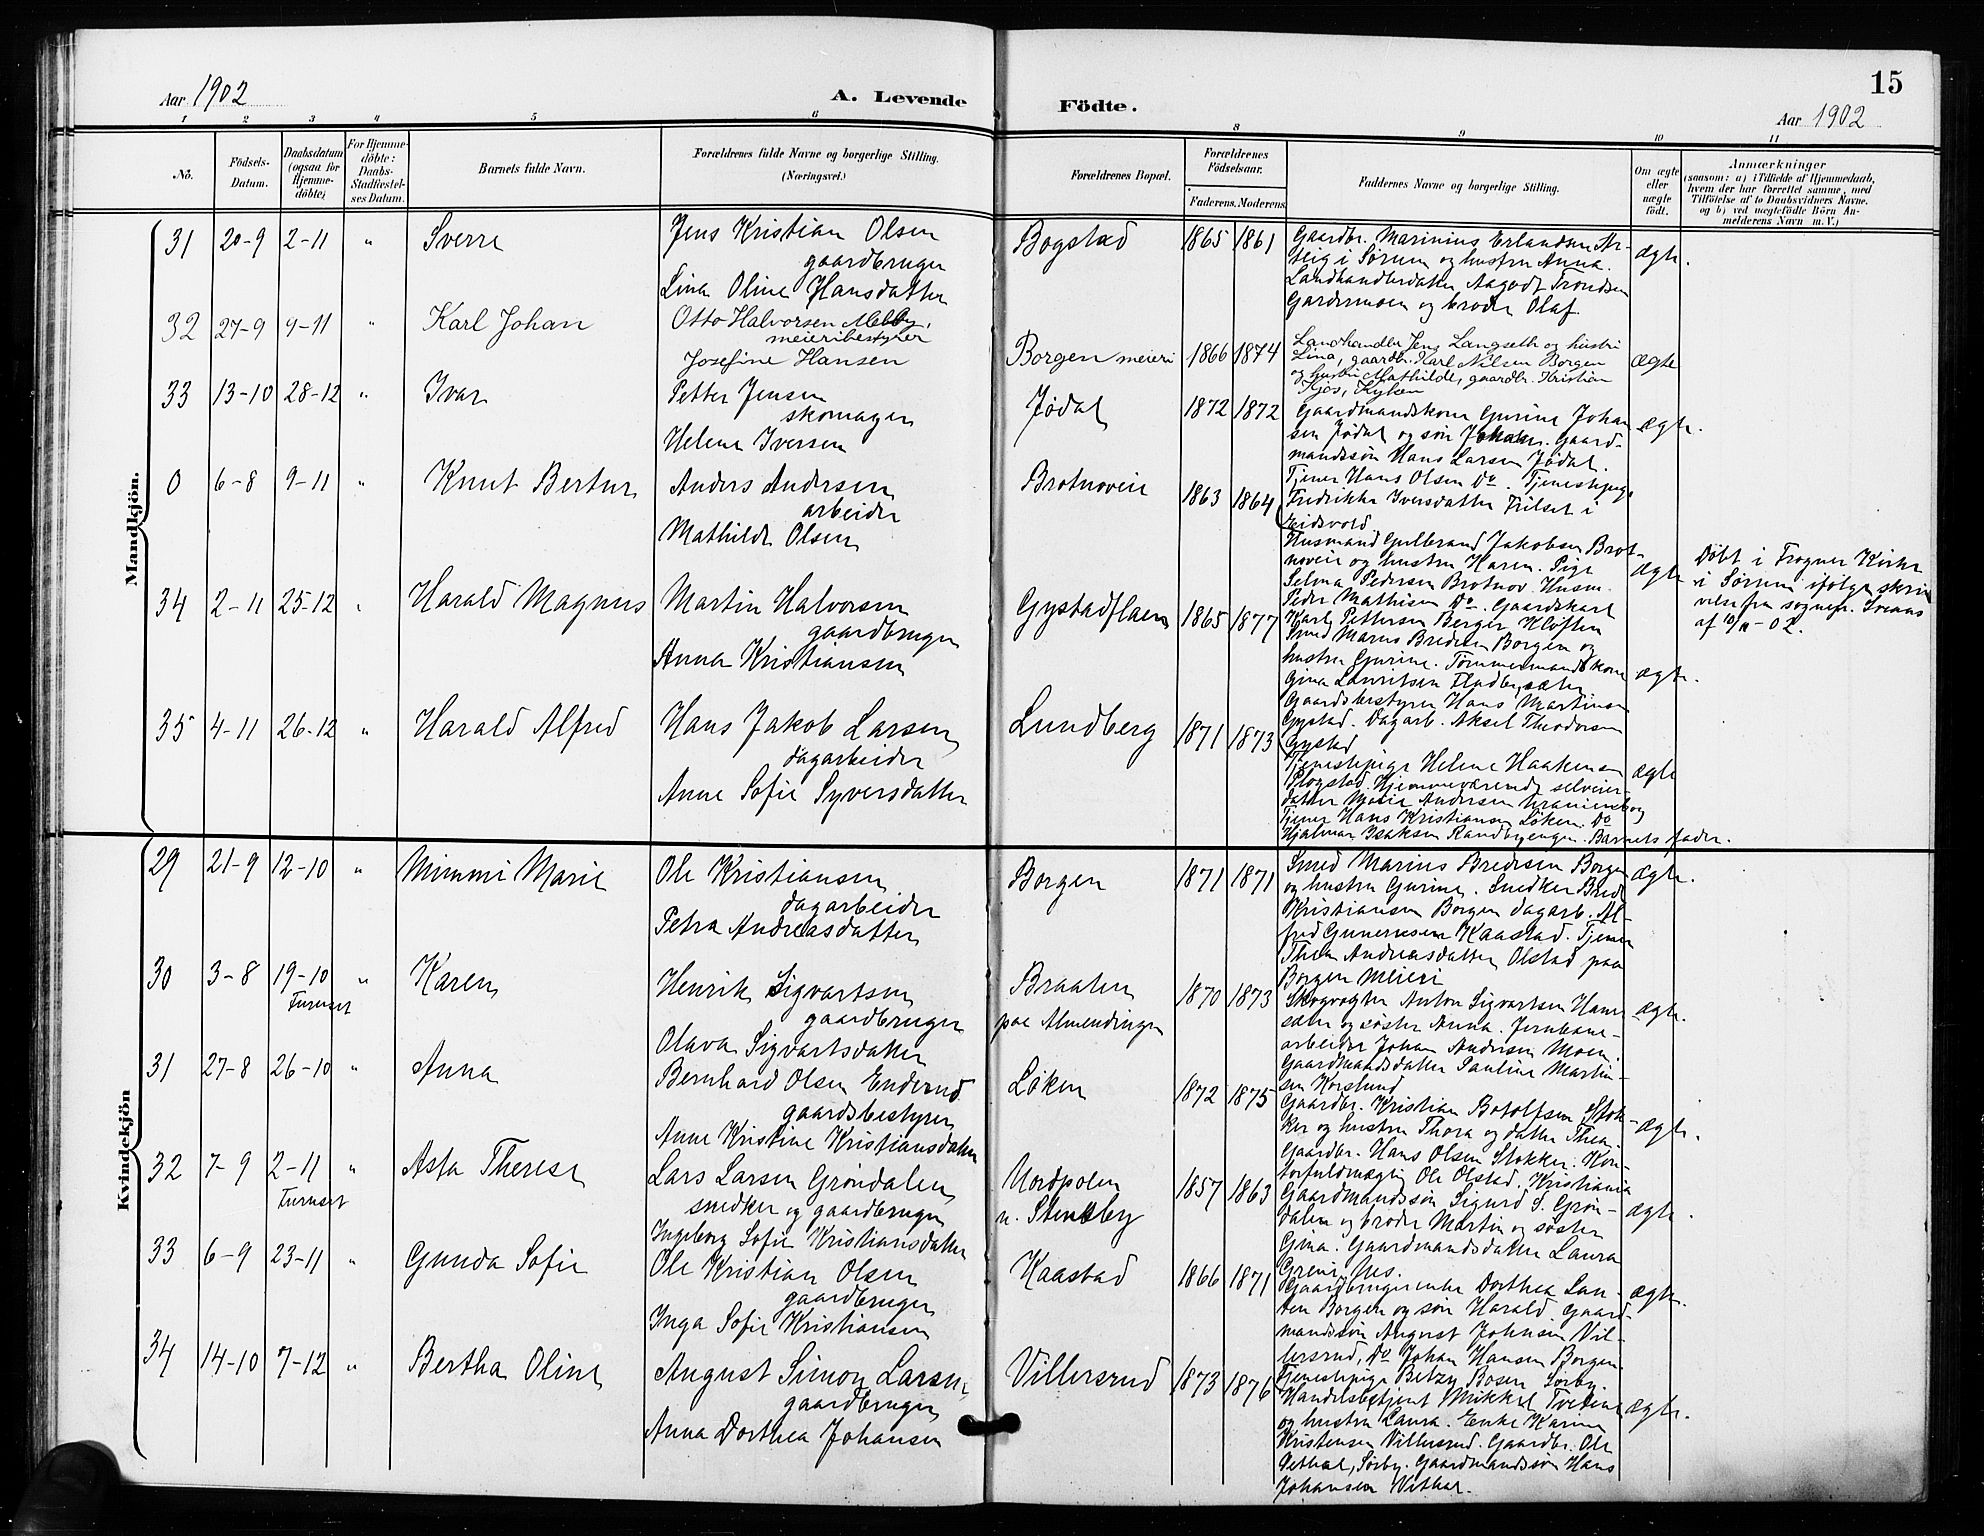 15
Aar 1902
A. Levende
Födte.
Aar 1902
1 2 3 4 5 6 8 9 10 11
No.
Födsels-Datum.
Daabsdatum (ogsaa for Hjemme-döbte)
For Hjemme-döbte: Daabs-Stadfæstel-ses Datum.
Barnets fulde Navn.
Forældrenes fulde Navne og borgerlige Stilling.
(Næringsvei.)
Forældrenes Bopæl.
Forældrenes Födselsaar.
Faderens. Moderens.
Faddernes Navne og borgerlige Stilling.
Om ægte eller uægte födt.
Anmærkninger
(saasom: a) i Tilfælde af Hjemmedaab,
hvem der har forrettet samme, med
Tilföielse af to Daabsvidners Navne.
og b) ved uægtefödte Börn An-
melderens Navn m. V.)
Mandkjön.
31 20-9 2-11 " Sverre
Jens Kristian Olsen
gaardbruger
Lina Oline Hansdatter
Bogstad 1865 1861
Gaardbr. Marinius Erlandsen Ar-
teig i Sørum og hustru Anna.
Landhandlerdatter Aagodt Trondsen
Gardermoen og broder Olaf.
ægte.
32 27-9 9-11 " Karl Johan
Otto Halvorsen Melby,
meieribestyrer
Josefine Hansen
Borgen meieri 1866 1874
Landhandler Jens Langseth og hustru
Lina, gaardbr. Karl Nilsen Borgen
og hustru Mathilde, gaardbr. Kristian
Hjøs, Kylken
ægte
33 13-10 28-12 " Ivar
Petter Jensen
skomager
Helene Iversen
Jødal 1872 1872
Gaardmandskone Gurine Johan
sen Jødal og søn Johan. Gaard-
mandssøn Hans Larsen Jødal.
Tjener Hans Olsen Do. Tjenestepige
Fredrikke Iversdatter Frilset i
Eidsvold.
ægte.
0 6-8 9-11 " Knut Bertur
Anders Andersen
arbeider
Mathilde Olsen
Brotnoveie 1863 1864
Husmand Gulbrand Jakobsen Brot-
noveie og hustru Karen. Pige
Selma Pedersen Brotnov. Husm.
Peder Mathisen Do. Gaardskarl
Karl Pettersen Berger Kløften
ægte
Døbt i Frogner Kirke
i Sørum ifølge skri
velse fra sognepr. Svaas
af 10/11-02.
34 2-11 25-12 " Harald Magnus
Martin Halvorsen
gaardbruger
Anna Kristiansen
Gystadflaen 1865 1877
Smed Marius Bredesen Borgen og
hustru Gurine. Tømmermandskone
Gina Lauritsen Fladbysæter
Gaardsbestyrer Hans Martinsen
Gystad. Dagarb. Aksel Theodorsen
Gystad
ægte.
35 4-11 26-12 " Harald Alfred
Hans Jakob Larsen
dagarbeider
Anne Sofie Syversdatter
Lundberg 1871 1873
Tjenestepige Helene Haakensen
Plogstad. Hjemmeværende selveier-
datter Marie Andersen Uranienborg
Tjener Hans Kristiansen Løken. Do
Hjalmar Isaksen Randbyengen. Barnets fader.
ægte
Kvindekjön
29 21-9 12-10 " Mimmi Marie
Ole Kristiansen
dagarbeider
Petra Andreasdatter
Borgen 1871 1871
Smed Marius Bredesen Borgen
og hustru Gurine. Snedker Bred
Kristiansen Borgen dagarb. Al-
fred Gunerusen Kaastad. Tjener
Thea Andreasdatter Olstad paa
Borgen Meieri
ægte.
30 3-8 19-10 " Karen
Furuset
Henrik Sigvartsen
gaardbruger
Olava Sigvartsdatter
Braaten
paa Almendingen
1870 1873
Skogvogter Anton Sigvartsen Hans
sæter og søster Anna. Jernbane-
arbeider Johan Andersen Moen.
Gaardmandsdatter Pauline Martin-
sen Korslund
ægte.
31 27-8 26-10 " Anna
Bernhard Olsen Enderud
gaardsbestyrer
Anne Kristine Kristiansdatter
Løken 1872 1875
Gaardbr. Kristian Botolfsen Stok-
ker og hustru Thora og datter Thea.
Gaardbr. Hans Olsen Stokker. Kon-
torfuldmægtig Ole Olstad. Kristiania
ægte.
32 7-9 2-11 " Asta Therese
Furuset
Lars Larsen Grøndalen
snedker og gaardbruger
Ingeborg Sofie Kristiansdatter
Nordpolen
u. Stensby
1857 1863
Gaardmandssøn Sigurd S. Grøn-
dalen og broder Martin og søster
Gina. Gaardmandsdatter Laura
Greni, Nes.
ægte.
33 6-9 23-11 " Gunda Sofie
Ole Kristian Olsen
gaardbruger
Inga Sofie Kristiansen
Kaastad 1866 1871
Gaardbrugerenke Dorthea Lar-
sen Borgen og søn Harald Gaard-
mandssøn August Johnsen Vil-
lersrud, Do Johan Hansen Borgen.
Tjenestepige Betzy Bosen Sørby.
ægte.
34 14-10 7-12 " Bertha Oline
August Simon Larsen
gaardbruger
Anna Dorthea Johansen
Villersrud 1873 1876
Handelsbetjent Mikkel Tveiene
og hustru Laura. Enke Karine
Kristensen Villersrud. Gaardbr. Ole
Vethal, Sørby. Gaardmandssøn Hans
Johansen Vithal.
ægte.